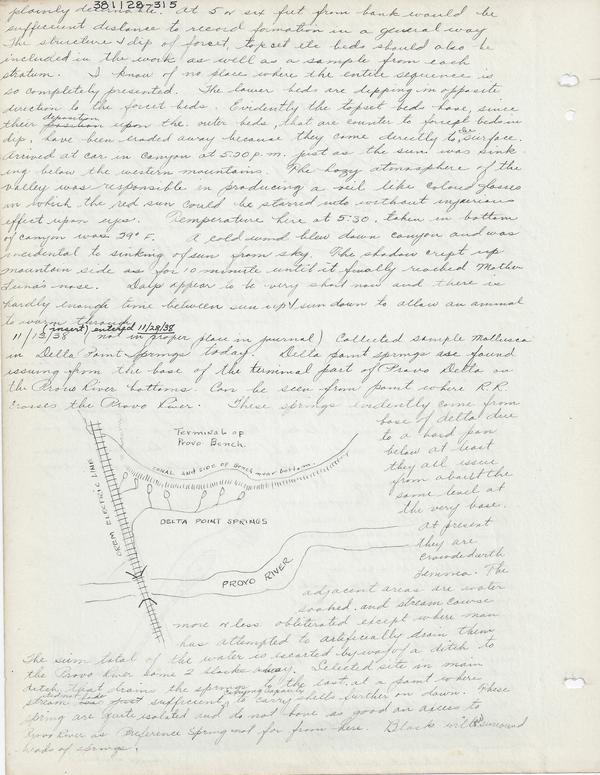 381128-315
plainly determinable. At 5 or six feet from bank would be
sufficient distance to record formation in a general way
The structure & dip of forset, topset etc beds should also be
included in the work as well as a sample from each
stratum. I know of no place where the entire sequence is
so completely presented. The lower beds are depping in opposite
direction to the forcet beds. Evidently the topset beds have, since
their deposition upon the outer beds, that are counter to forcept beds in
dip, have been eraded away because they come directly to the surface.
arrived at car in canyon at 5:20 p.m. just as the sun was sink-
ing below the western mountains. The hazy atmosphere of the
valley was responsible in producing a veil like colored glasses
in which the red sun could be starred into without injurious
effect upon eyes. Temperature here at 5:30. taken in bottom
of canyon was 29° F. A cold wind blew down canyon and was
incidental to sinking of sun from sky The shadow crept up
mountain side as for 10 minute until it finally reached Mother
Luna's nose. Days appear to be very short now and there is
hardly enough time between sun up & sun down to allow an animal
to warm through.
(insert) entered 11/28/38
11/13/38 (not in proper place in journal) Collected sample Mollusca
in Delta Point Springs today. Delta point springs are found
issuing from the base of the terminal part of Provo Delta on
the Provo River bottoms. Can be seen from point where R.R.
crosses the Provo River. These springs evidently come from
base of delta due
to a hard pan
below at least
they all issue
from about the
same level at
the very base.
At present
they are
crowded with
Lemma. The
adjacent areas are water
soaked and stream course
more or less obliterated except where man
has attempted to artificially drain them
Terminal of
Provo Bench.
CANAL and side of Bench near bottom.
OREM ELECTRIC LINE
DELTA POINT SPRINGS
PROVO RIVER
The sum total of the water is escarted by way of a ditch to
the Provo River some 2 blocks away. Selected site in main
ditch that drains the springs to the east, at a point where
stream does not lode sufficient carrying capacity to carry shells further on down. These
spring are quite isolated and do not have as good an access to
Provo River as Preference Spring not far from here. Black willows surround
heads of springs.